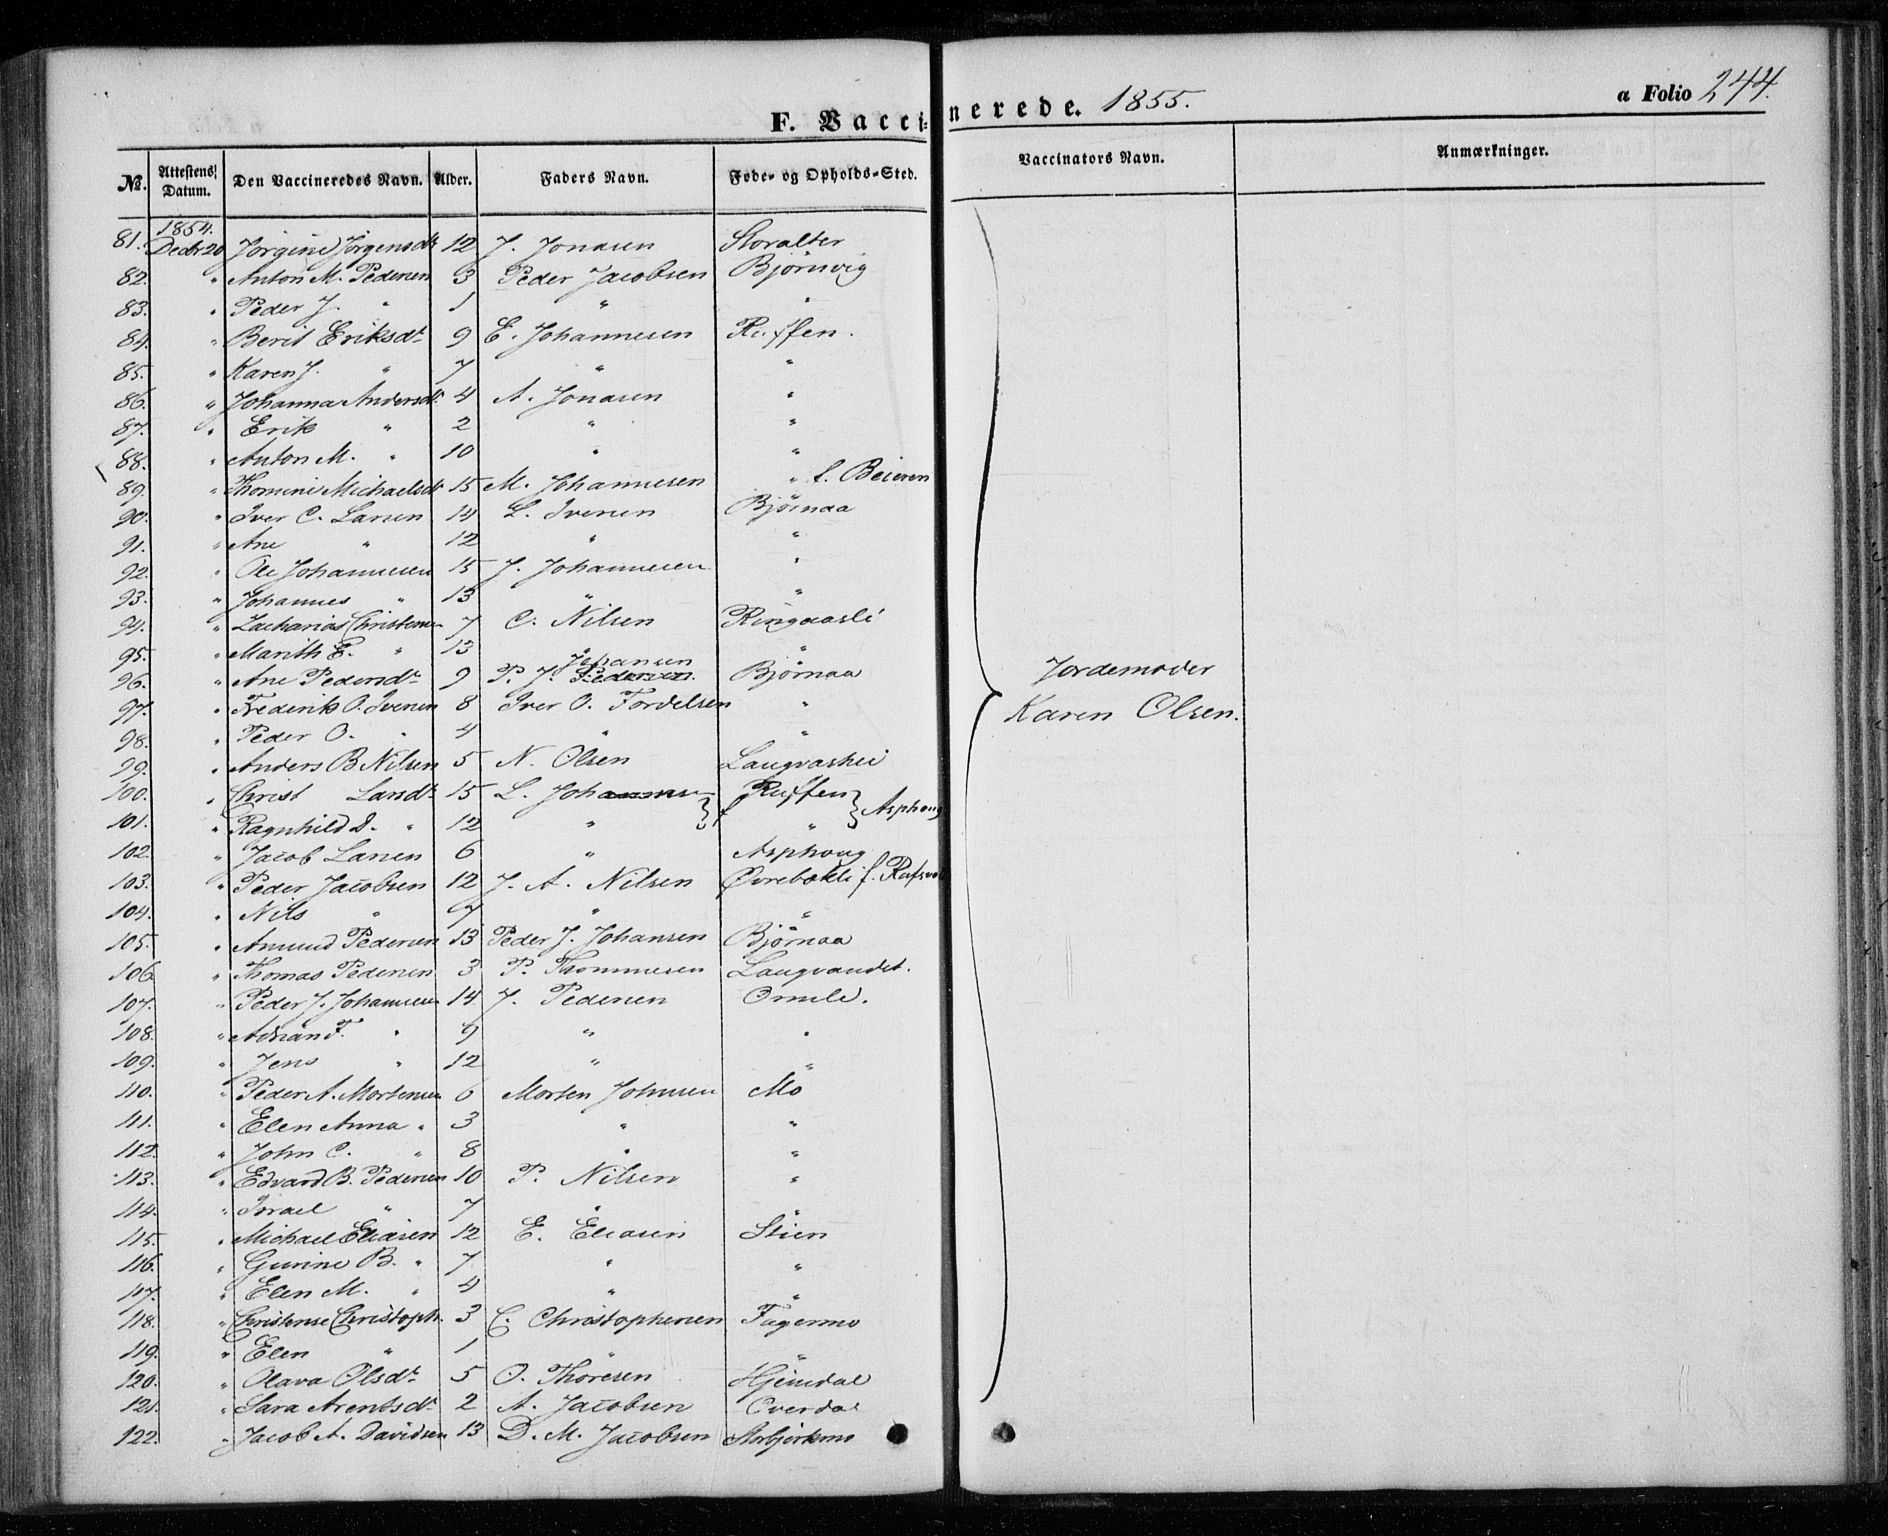 F. Vaccinerede. 1855.
a Folio 244.
№. Attestens Datum. Den Vaccineredes Navn. Alder. Faders Navn. Føde- og Opholds-Sted. Vaccinators Navn. Anmærkninger.
1854.
81. Decbr 20 Jørgine Jørgensdr 12 J. Jonasen Storalter
82. " Anton M. Pedersen 3 Peder Jacobsen Bjørnvig
83. " Peder J. " 1 " "
84. " Berit Eriksdr 9 E. Johannesen
85. " Karen J. " 7 " "
86. " Johanna Andersdr 4 A. Jonasen "
87. " Erik " 2 " "
88. " Anton M. " 10 " "
89. " Thomine Michaelsdr 15 M. Johannesen " f. Beieren
90. " Iver C. Larsen 14 L. Iversen Bjørnaa
91. " Ane " 12 " "
92. " Ole Johannesen 15 J. Johannesen "
93. " Johannes " 13 " "
94. " Zacharias Christensen 7 C. Nilsen Ringaasli
95. " Marith E. " 13 " "
96. " Ane Pedersdr 9 P. J. Pedersen Johansen Bjørnaa
97. " Frederik O. Iversen 8 Iver O. Fordelsen "
98. " Peder O. " 4 " "
99. " Anders B Nilsen 5 N. Olsen Langvashei
100. " Christ Larsdr 15 L. Johannes
101. " Ragnhild D. " 12 " " Asphoug
102. " Jacob Larsen 6 " Asphoug
103. " Peder Jacobsen 12 J. A. Nilsen Øvrebakli f.
104. " Nils " 7 " "
105. " Amund Pedersen 13 Peder J. Johansen Bjørnaa
106. " Thomas Pedersen 3 P. Thommesen Langvandet.
107. " Peder J. Johannesen 14 J. Pedersen Ormli.
108. " Adrian F. " 9 " "
109. " Jens " 12 " "
110. " Peder A. Mortensen 6 Morten Johnsen Mo
111. " Elen Anna " 3 " "
112. " John C. " 8 " "
113. " Edvard B. Pedersen 10 P. Nilsen "
114. " Israel " 7 " "
115. " Michael Eliasen 12 E. Eliasen Stien
116. " Gurine B. " 7 " "
117. " Elen M. " 4 " "
118. " Christense Christoph. 3 C. Christophersen Fagermo
119. " Elen " 1 " "
120. " Olava Olsdr 5 O. Thoresen Hjemdal
121. " Sara Arentsdr 2 A. Jacobsen Overdal
122. " Jacob A. Davidsen 13 D. M. Jacobsen Storbjerkmo
Jordemoder
Karen Olsen.